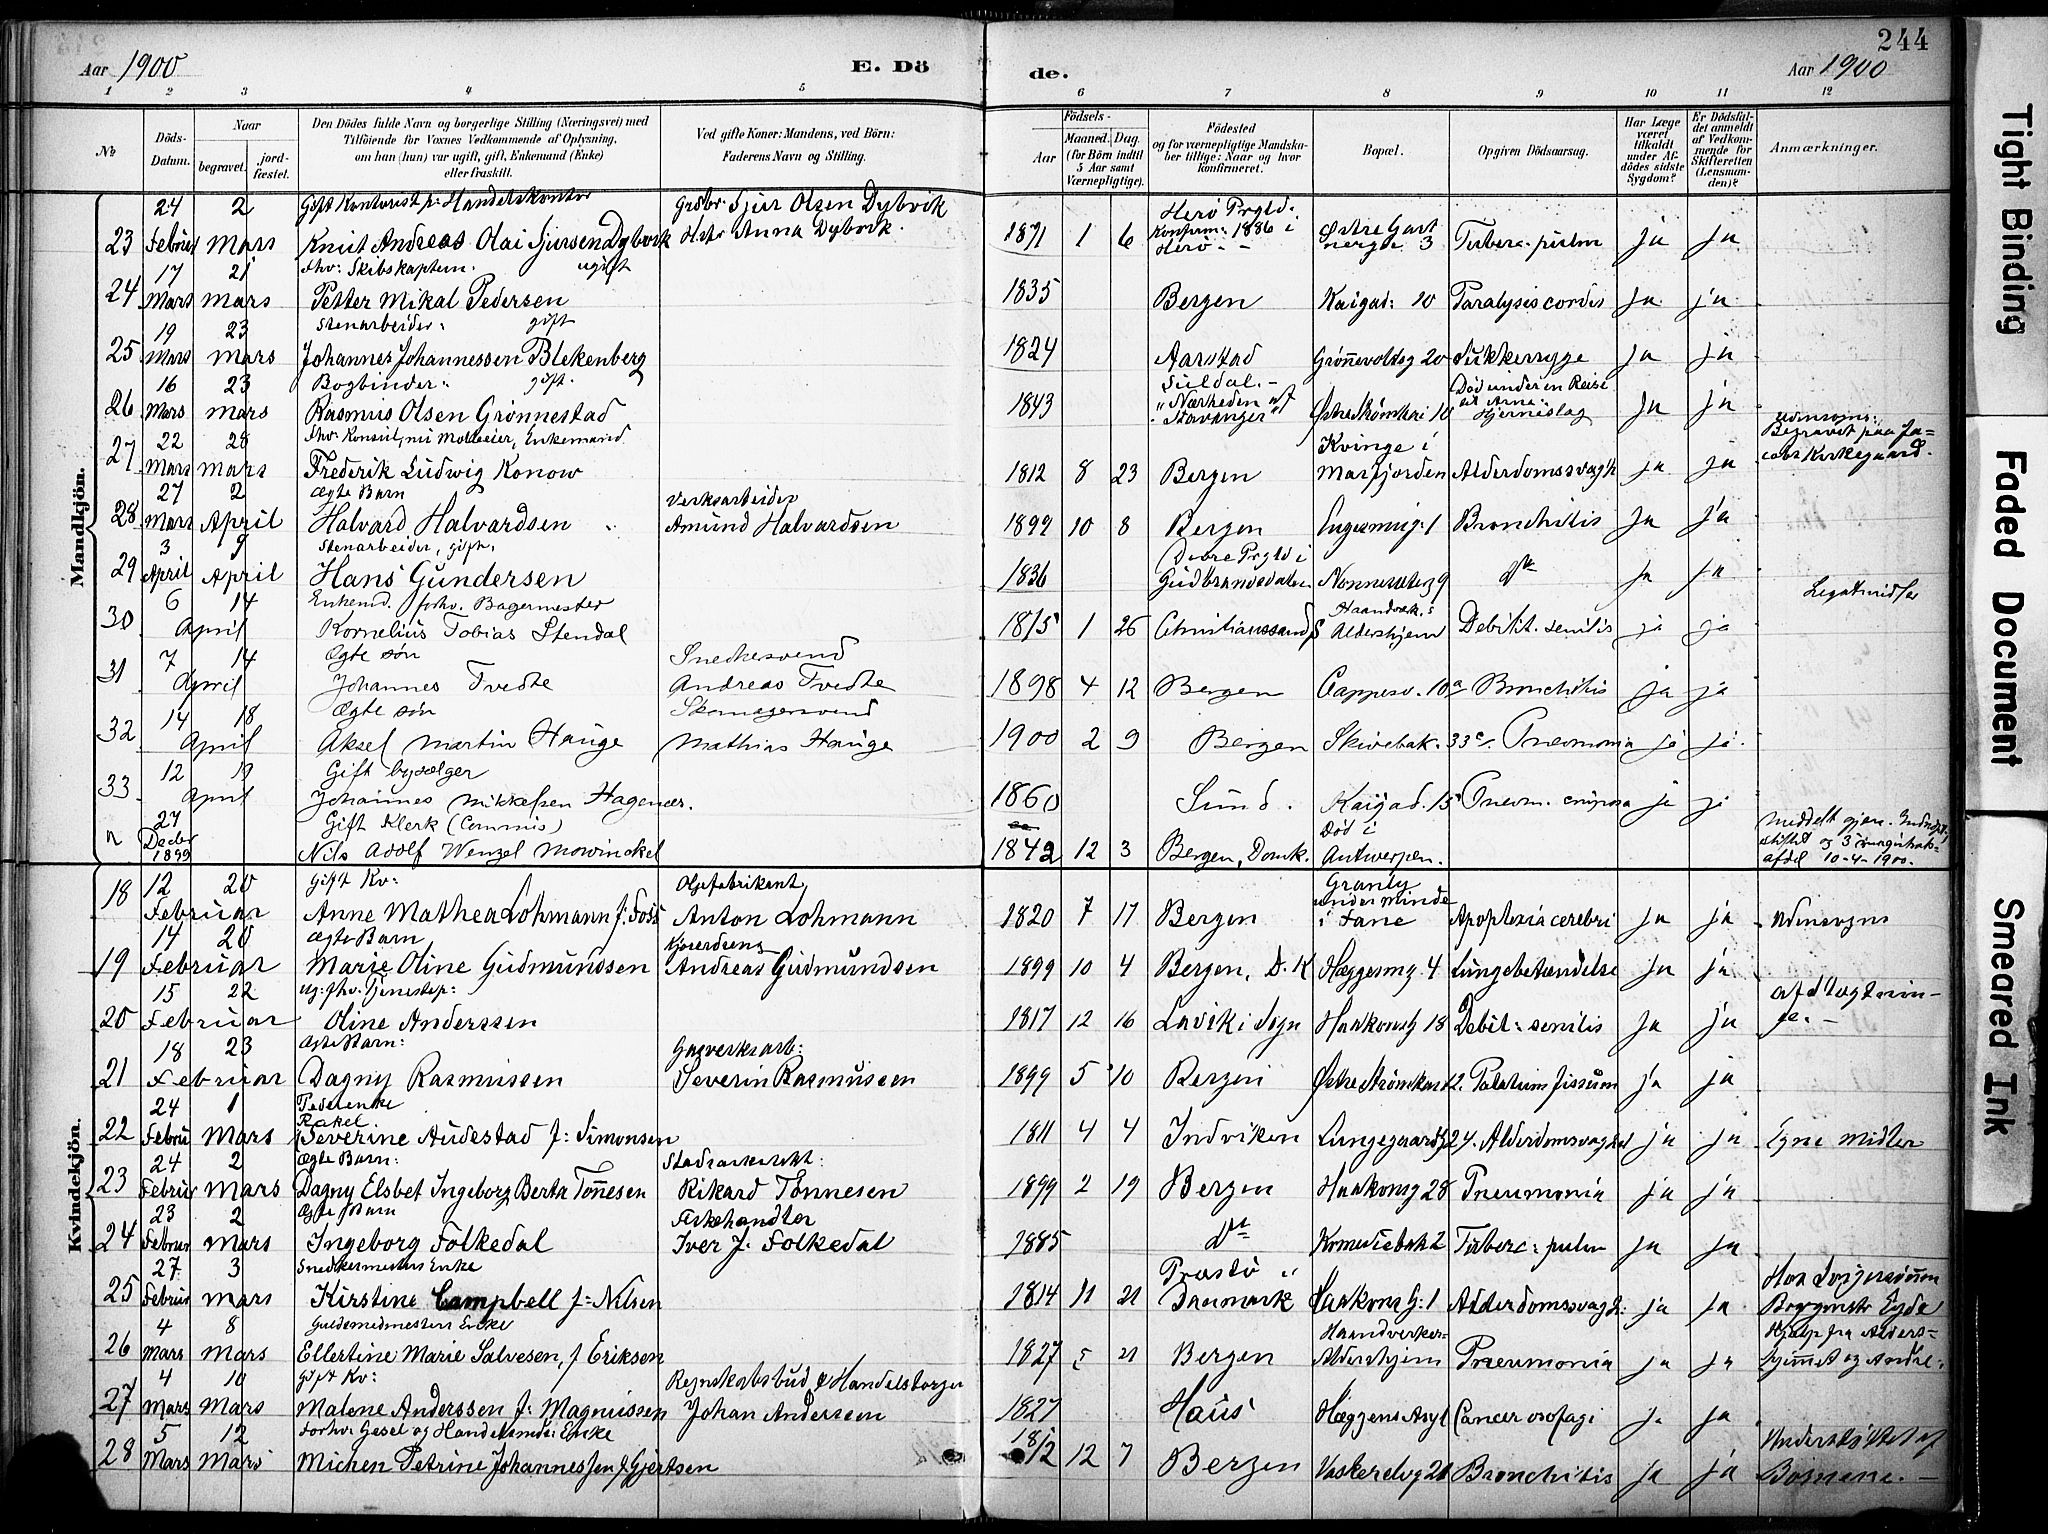 244
Aar 1900 E. Dö
de. Aar 1900
1 2 3 4 5 6 7 8 9 10 11 12
№
Döds-Datum.
Naar
begravet.
jord-fæstet.
Den Dödes fulde Navn og borgerlige Stilling (Næringsvei) med
Tilföiende for Voxnes Vedkommende af Oplysning,
om han (hun) var ugift, gift, Enkemand (Enke)
eller fraskilt.
Ved gifte Koner: Mandens, ved Börn:
Faderens Navn og Stilling.
Födsels-
Aar
Maaned. Dag.
(for Börn indtil
5 Aar samt
Værnepligtige).
Födested
og for værnepligtige Mandska-
ber tillige: Naar og hvor
konfirmeret.
Bopæl.
Opgiven Dödsaarsag.
Har Læge
været
tilkaldt
under Af-
dödes sidste
Sygdom?
Er Dödsfal-
det anmeldt
af Vedkom-
mende for
Skifteretten
(Lensman-
den)?
Anmærkninger.
Mandkjön.
24 2 Gift Kontorist p: Handelskontor Grdbr: Sjur Olsen Dybvik Herö Prgld.
23 Februar Mars Knut Andreas Olai Sjursen Dybvik Hstr Anna Dybvik. 1871 1 6 Konfirm: 1886 i Herö - Østre 3 Tuberc. pulm ja ja
17 21 fhv: Skibskaptein. ugift
24 Mars Mars Petter Mikal Pedersen 1835 Bergen Kaigad: 10 Paralysis cordis ja ja
19 23 Stenarbeider: gift
25 Mars Mars Johannes Johannessen Blekenberg 1824 Aarstad Grönnevoldsg 20 Sukkersyge ja ja
16 23 Bogbinder: gift. Suldal.- Död under en Reise
26 Mars Mars Rasmus Olsen Grönnestad 1843 "Nærheden af Stavanger" Østre Strömkai 10 til Arne: Hjerneslag ja ja
22 28 fhv: Konsul, nu Enkemand Kvinge i Udensogns: Begravet paa Ja-
27 Mars Mars Frederik Ludwig Konow 1812 8 23 Bergen Masfjorden Alderdomssvagh ja ja cobs Kirkegaard.
27 2 Ægte Barn Verksarbeider
28 Mars April Halvard Halvardsen Amund Halvardsen 1899 10 8 Bergen 1 Bronchitis ja ja
3 9 Stenarbeider, gift. Dovre Prgld i
29 April April Hans Gundersen 1836 Gudbrandsdalen Nonneseterg 9 Do ja ja
6 14 Enkemd. forhv. Bagermester Haandvæk.s
30 April Kornelius Tobias Stendal 1815 1 26 Christianssand S Aldershjem Debilit. senilis ja ja
7 14 Ægte sön Snedkersvend
31 April Johannes Tvedte Andreas Tvedte 1898 4 12 Bergen 10a Bronchitis ja ja
14 18 Ægte sön Skomagersvend
32 April Aksel Martin Hauge Mathias Hauge 1900 2 9 Bergen Skivebak. 33c. Pneumonia ja ja.
12 19 Gift bysælger
33 April Johannes Mikkelsen Hagenæs. 1860 Sund. Kaigad. 15 Pneum. cruposa ja ja
27 Gift Klerk (Commis) Död i
n Decbr 1899 Nils Adolf Wenzel Mowinckel 1842 12 3 Bergen, Domk. Antwerpen. Meddelt gjen. 10-4-1900.
Kvindekjön.
12 20 Gift Kv: Oljefabrikant Granly under Minde
18 Februar Anne Mathea Lohmann f: Foss Anton Lohmann 1820 7 17 Bergen i Fane Apoplexia cerebri ja ja Udensogns
14 20 Ægte Barn Kjöredreng
19 Februar Marie Oline Gudmundsen Andreas Gudmundsen 1899 10 4 Bergen, D. K Hæggesmg 4 Lungebetændelse ja ja
15 22 ug: fhv. Tjenestep:
20 Februar Oline Anderssen 1817 12 16 Lavik i Sogn Haakonsg 18 Debil: senilis ja ja
18 23 Ægte Barn: Gasverksarb:
21 Februar Dagny Rasmussen Severin Rasmussen 1899 5 10 Bergen Østre Strömkai 12. Palatum fissum ja ja
24 1 Rakel
22 Februar Mars Severine Audestad f: Simonsen 1811 4 4 Indviken Lungegaardsg 24. Alderdomssvaghed ja ja Egne midler
24 2 Ægte Barn: Stadsarkitekt:
23 Februar Mars Dagny Elsbet Ingeborg Berta Tönnesen Rikard Tönnesen 1899 2 19 Bergen Haakonsg 28 Pneumonia ja ja
23 2 Ægte Barn Fiskehandler
24 Februar Mars Ingeborg Folkedal Iver J. Folkedal 1885 Do Komediebak 2 Tuberc: pulm ja ja
27 3 Snedkermesters Enke Præstö i
25 Februar Mars Kirstine Campbell f: Nilsen 1814 11 21 Danmark Haakons G: 1 Alderdomssvagh: ja ja Hos Svigersönnen Eyde
4 8 Guldsmedmesters Enke Haandverker-
26 Mars Mars Ellertine Marie Salvesen, f Eriksen 1827 5 21 Bergen Aldershjem Pneumonia ja ja Hjælp fra Alders-hjemmet og Andre.
4 10 Gift Kv: Regnskabsbud p Handelstorget
27 Mars Mars Malene Anderssen f: Magnussen Johan Anderssen 1827 Haus Hæggens Asyl Cancer osofagi ja ja
5 12 Forhv: Gesel og Enke
28 Mars Mars Michen Petrine Johannessen f. Gjertsen 1812 12 7 Bergen Vaskerelvg 21 Bronchitis ja ja Understöttet af Börnene.-
Tight Binding
Faded Document
Smeared Ink